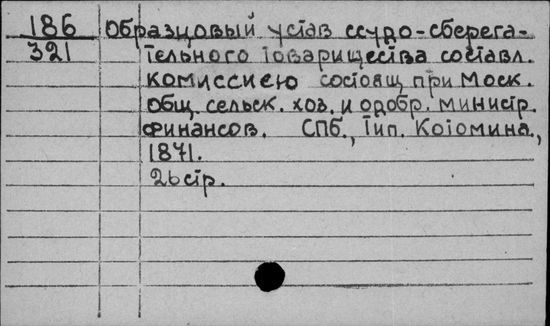 186 Образцовый устав ссудо-сберега-
321 тельного товарищества составл.
комиссиею состоящ при Моск.
общ. сельск. хоз. и одобр. министр.
финансов. СПб., Тип. Котомина.,
1871.
26 стр.